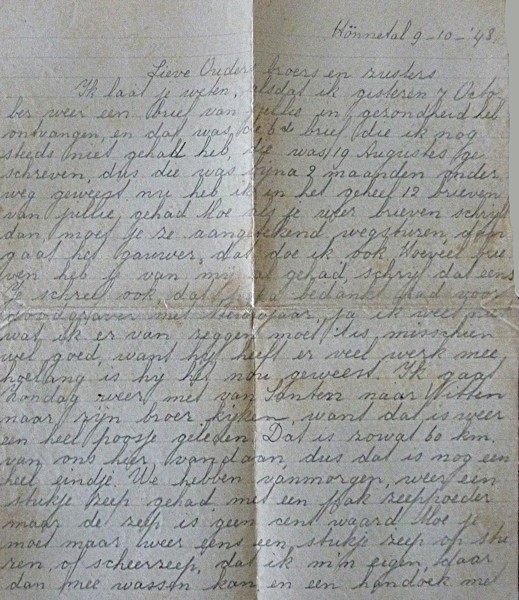 Hönnetal 9-10-'48
Lieve Ouders broers en zusters
Ik laat je weten, alsdat ik gisteren 7 Octo
ber weer een brief van jullie in gezondheid heb
ontvangen, en dat was de 6de brief die ik nog
steeds niet gehad heb, die was 19 Augustus ge
schreven, dus die was bijna 2 maanden onder
weg geweest nu heb ik in het geheel 12 brieven
van jullie gehad Moe als je weer brieven schrijft
dan, moet je ze aangetekend wegsturen, dan
gaat het gauwer, dat doe ik ook Hoeveel brie
ven heb je van mij al gehad schrijf dat eens
Je schreef ook dat bedankt had voor
met Nieuwjaar, ja ik weet niet
wat ik er van zeggen moet 't is misschien
wel goed, want hij heeft er veel werk mee
hoelang is hij het nou geweest. Ik gaat
zondag weer met van Santen naar Witten
naar zijn broer kijken, want dat is weer
een heel poosje geleden. Dat is zowat 60 km.
van ons hier, vandaan, dus dat is nog een
heel eindje. We hebben vanmorgen, weer een
stukje zeep gehad met een pak zeeppoeder
maar de zeep is geen cent waard Moe je
moet maar weer eens een, stukje zeep op stu
ren, of scheerzeep, dat ik mijn eigen, daar
dan mee wassen kan en een handoek met